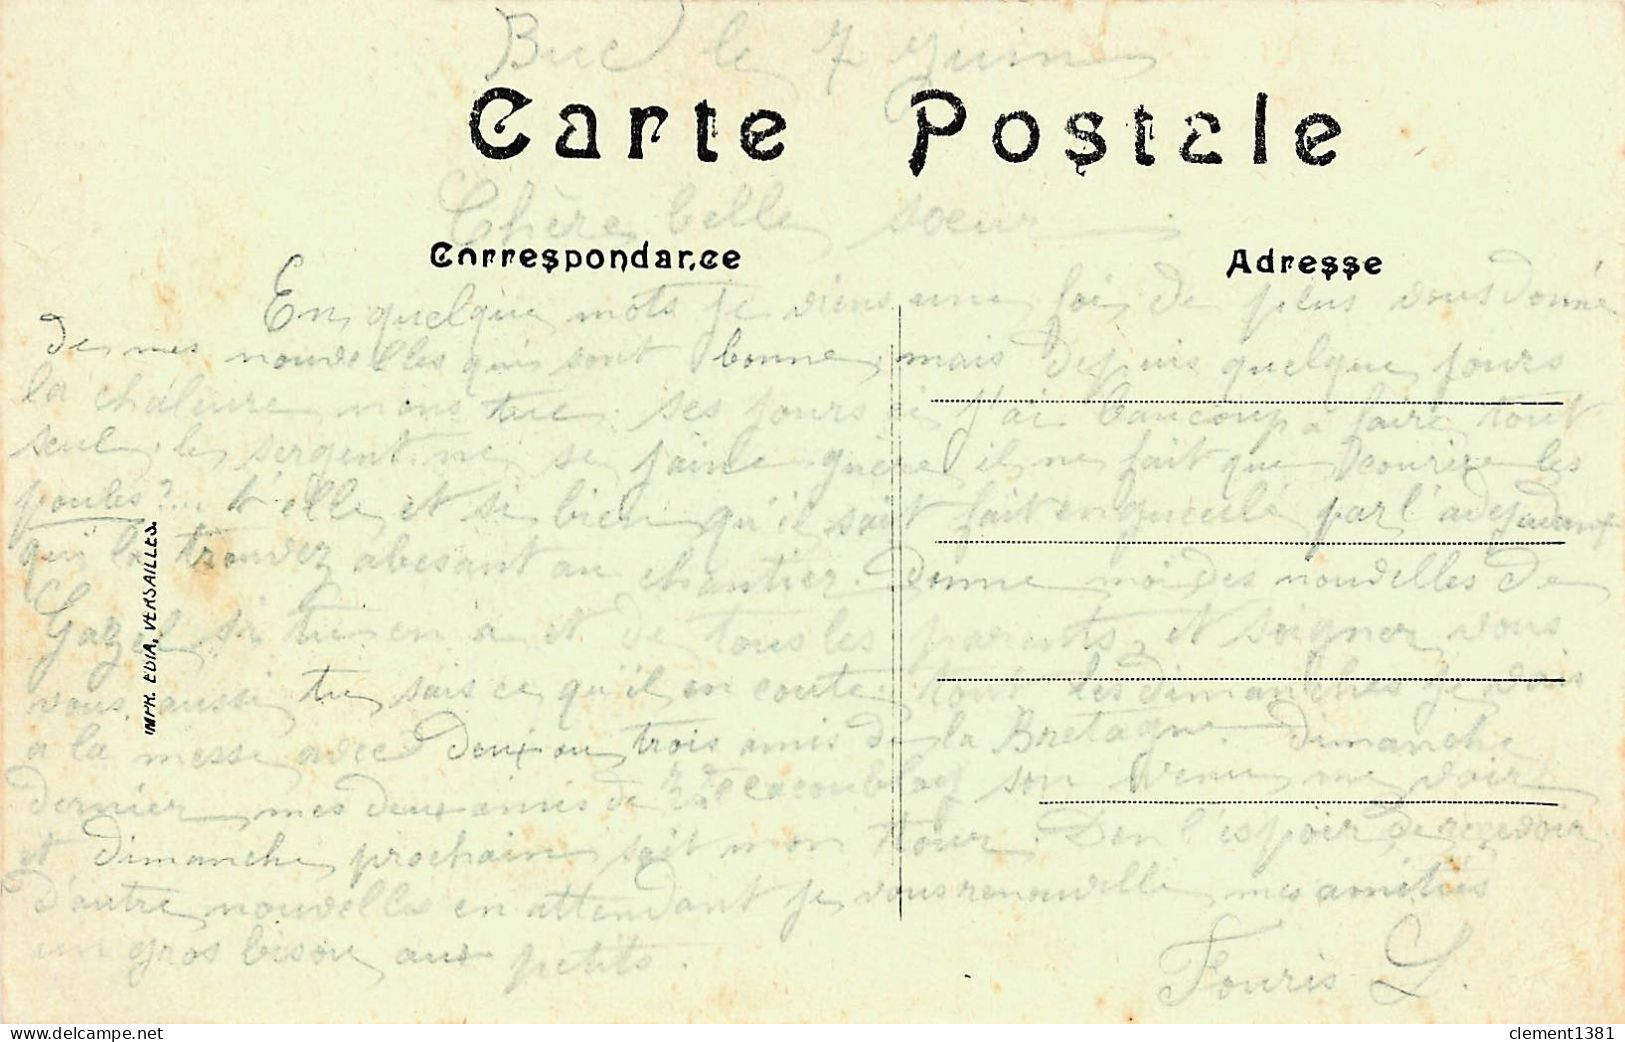 Buc le 7 Juin
Carte Postale
Chère belle sœur
Correspondance
Adresse
En quelque mots je viens une fois de plus vous donné
de mes nouvelles qui sont bonne, mais depuis quelque jours
la chaleure nous tue. ses jours ci j'ai baucoup a faire tout
seul. le sergent ne se faine guère il ne fait que courire les
poules?... t'elle et si bien qu'il sait fait engueulé par l'adejudant
qui la trouvez abesant au chantier. Donne moi des nouvelles de
si tu en a et de tous les parents, et soigner vous
vous aussi tu sais ce qu'il en coute. tout les dimanches je vais
a la messe avec deux ou trois amis de la Bretagne. dimanche
dernier mes deux amis de son venu me voir
et dimanche prochain sait mon tour. Den l'espoir de recevoir
d'autre nouvelles en attendant je vous renouvelle mes amitiés
un gros bisou aux petits.
Fouris L.
IMPR. EDIA, VERSAILLES.
clement1381